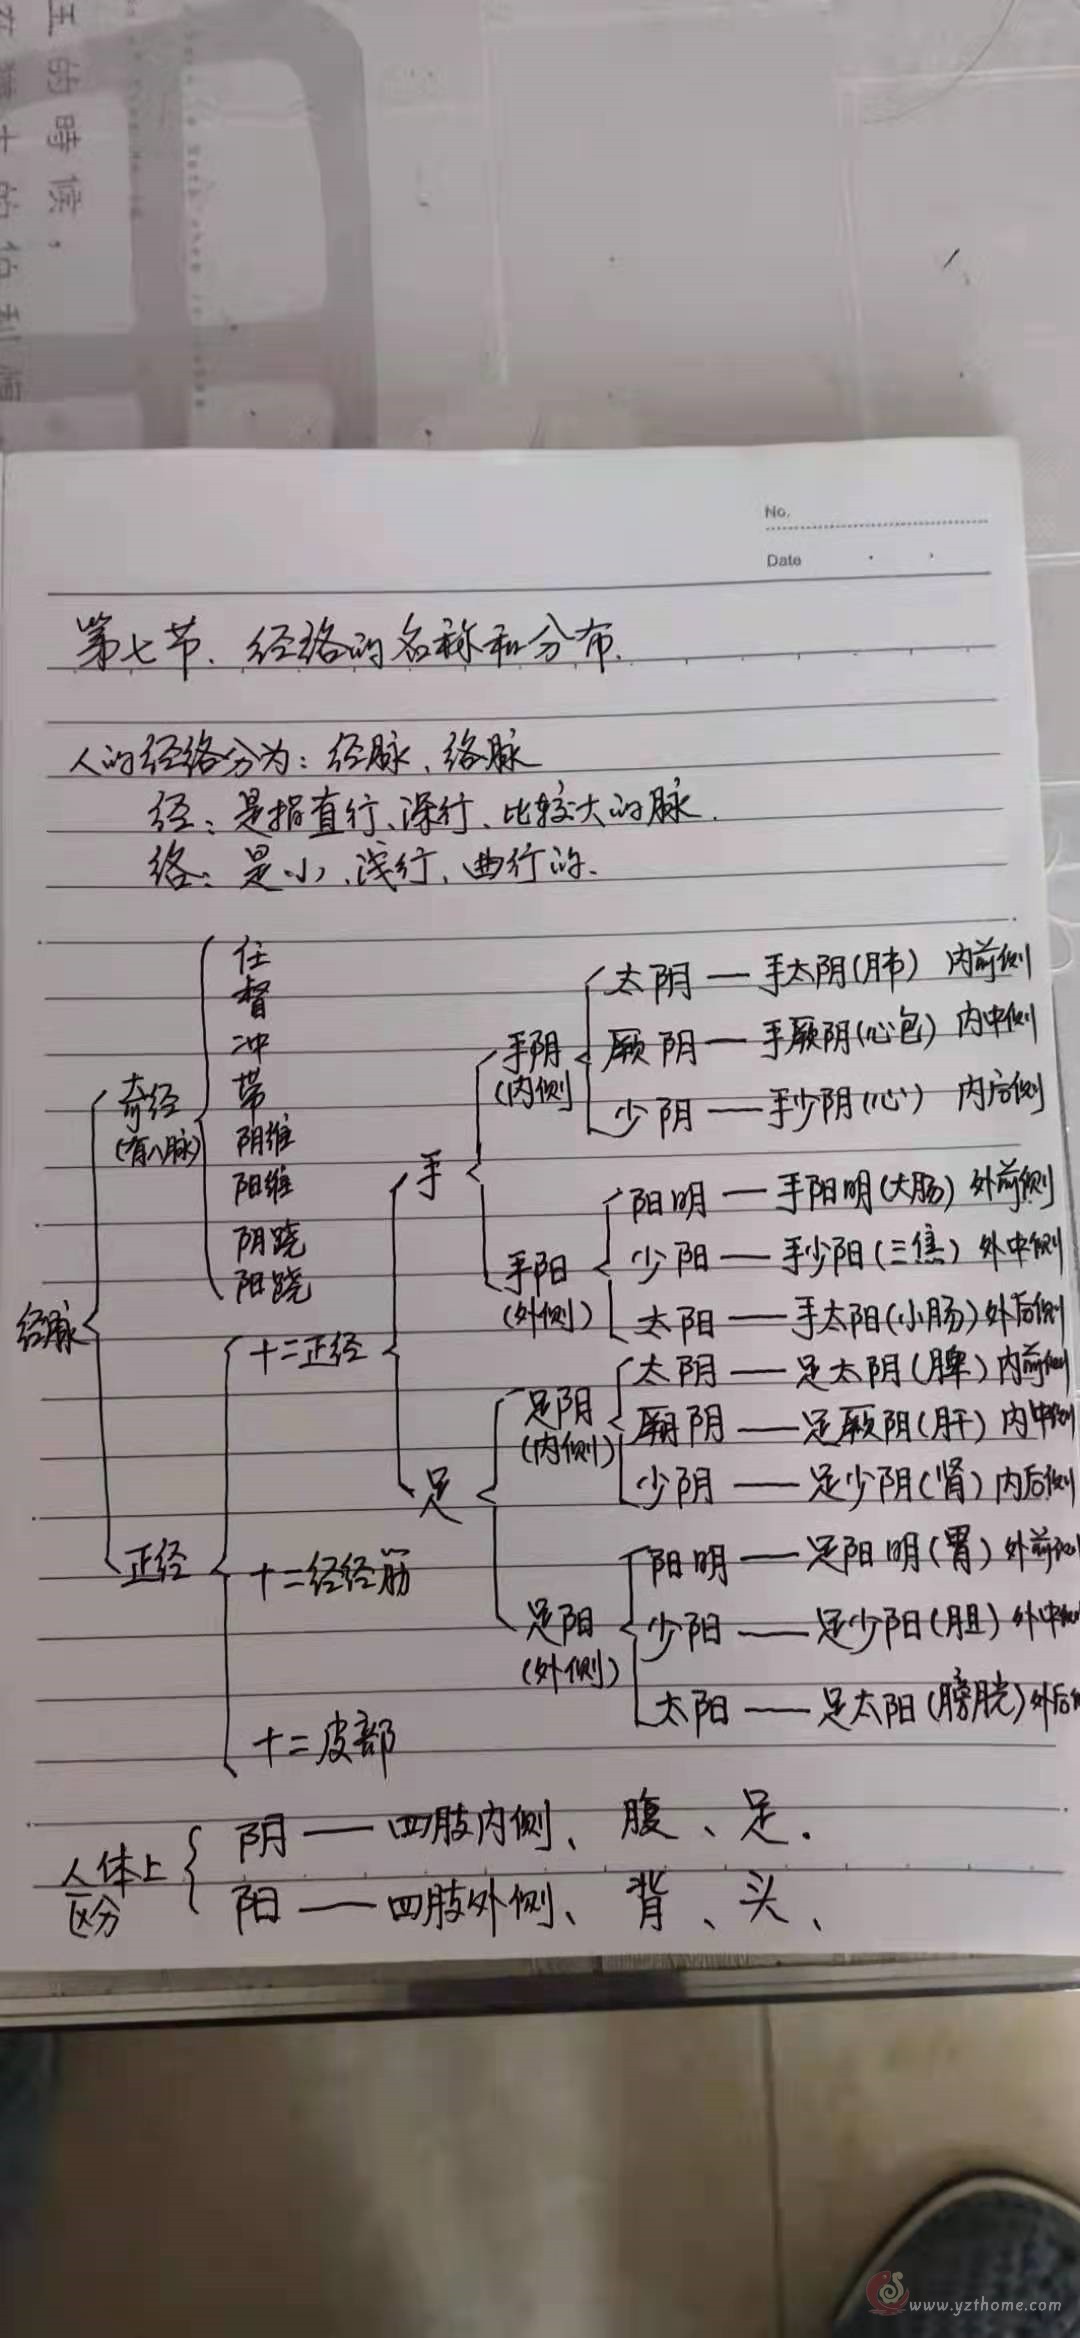 王的時候，
No.
Date
第七节、经络的名称和分布.
人的经络分为：经脉、络脉
经：是指直行、深行、比较大的脉.
络：是小、浅行、曲行的.
经脉
奇经
(有八脉)
任
督
冲
带
阴维
阳维
阴跷
阳跷
正经
十二正经
手
手阴
(内侧)
太阴——手太阴(肺) 内前侧
厥阴——手厥阴(心包) 内中侧
少阴——手少阴(心) 内后侧
手阳
(外侧)
阳明——手阳明(大肠) 外前侧
少阳——手少阳(三焦) 外中侧
太阳——手太阳(小肠) 外后侧
足
足阴
(内侧)
太阴——足太阴(脾) 内前侧
厥阴——足厥阴(肝) 内中侧
少阴——足少阴(肾) 内后侧
足阳
(外侧)
阳明——足阳明(胃) 外前侧
少阳——足少阳(胆) 外中
太阳——足太阳(膀胱) 外后
十二经经筋
十二皮部
人体上
区分
阴——四肢内侧、腹、足.
阳——四肢外侧、背、头、
www.yzthome.com